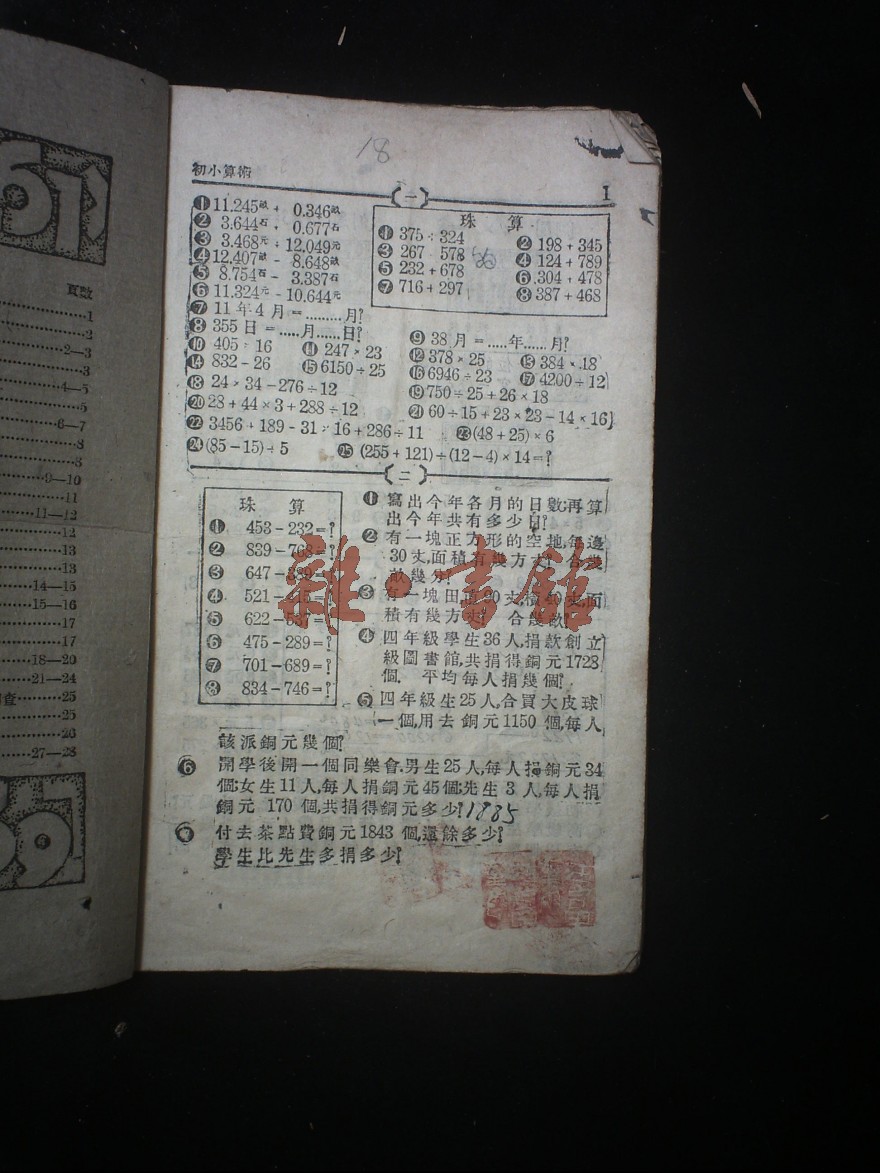 18
初小算術
1
一
❶11.245畝+ 0.346畝
❷ 3.644石+ 0.677石
❸ 3.468元+12.049元
❹12.407畝- 8.648畝
❺ 8.754石- 3.387石
❻ 11.324元-10.644元
珠 算
❶ 375+324 ❷ 198+345
❸ 267 578 ❹ 124+789
❺ 232+678 ❻ 304+478
❼ 716+297 ❽ 387+468
❼ 11年4月=………月?
❽ 355日=……月……日? ❾ 38月=……年……月?
❿ 405÷16 ⓫ 247×23 ⓬ 378×25 ⓭ 384×18
⓮ 832-26 ⓯ 6150÷25 ⓰ 6946÷23 ⓱ 4200÷12
⓲ 24×34-276÷12 ⓳750÷25+26×18
⓴28+44×3+288÷12 ㉑ 60÷15+23×23-14×16
㉒ 3456+189-31×16+286÷11 ㉓(48+25)×6
㉔(85-15)÷5 ㉕ (255+121)÷(12-4)×14=?
二
珠 算
❶ 453-232=?
❷ 839-768=?
❸ 647-389=?
❹ 521-415=?
❺ 622-537=?
❻ 475-289=?
❼ 701-689=?
❽ 834-746=?
❶ 寫出今年各月的日數;再算
出今年共有多少日?
❷ 有一塊正方形的空地,每邊
30丈,面積有幾方丈?合幾
畝幾分?
❸ 有一塊田直90丈,橫40丈,面
積有幾方丈? 合幾畝?
❹ 四年級學生36人,捐款創立
級圖書館,共捐得銅元1728
個. 平均每人捐幾個?
❺ 四年級生25人,合買大皮球
一個,用去銅元1150個,每人
該派銅元幾個?
❻ 開學後開一個同樂會.男生25人,每人捐銅元34
個;女生11人,每人捐銅元45個;先生3人,每人捐
銅元 170 個,共捐得銅元多少?1885
❼ 付去茶點費銅元1843個,還餘多少?
學生比先生多捐多少?
雜·書館
頁數
1
2
2—3
3
4—5
5
6—7
8
8
9—10
11
11—12
12
13
13
14—15
15—16
17
17
18—20
21—24
查 25
25
26
27—28